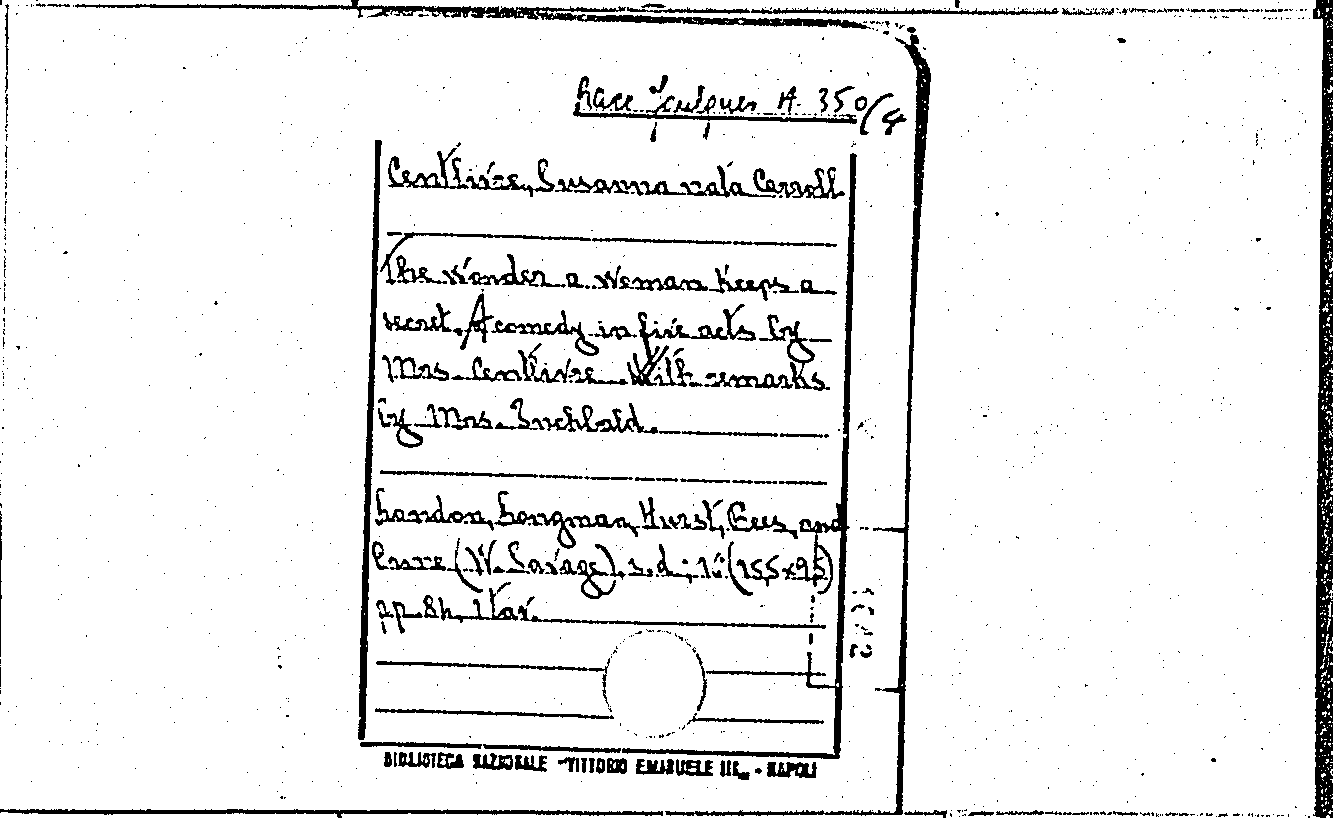 Race Jculques A. 350/4
Centlivre, Susanna nata Carroll
The Wonder a Woman Keeps a
secret. A comedy in five acts by
Mrs. Centlivre. With remarks
by Mrs. Inchbald.
London, Longman, Hurst, Rees, and
Orme (W. Savage), s.d.; 16° (15,5x9,5)
pp. 84, 1 tav.
BIBLIOTECA NAZIONALE "VITTORIO EMANUELE III" - NAPOLI